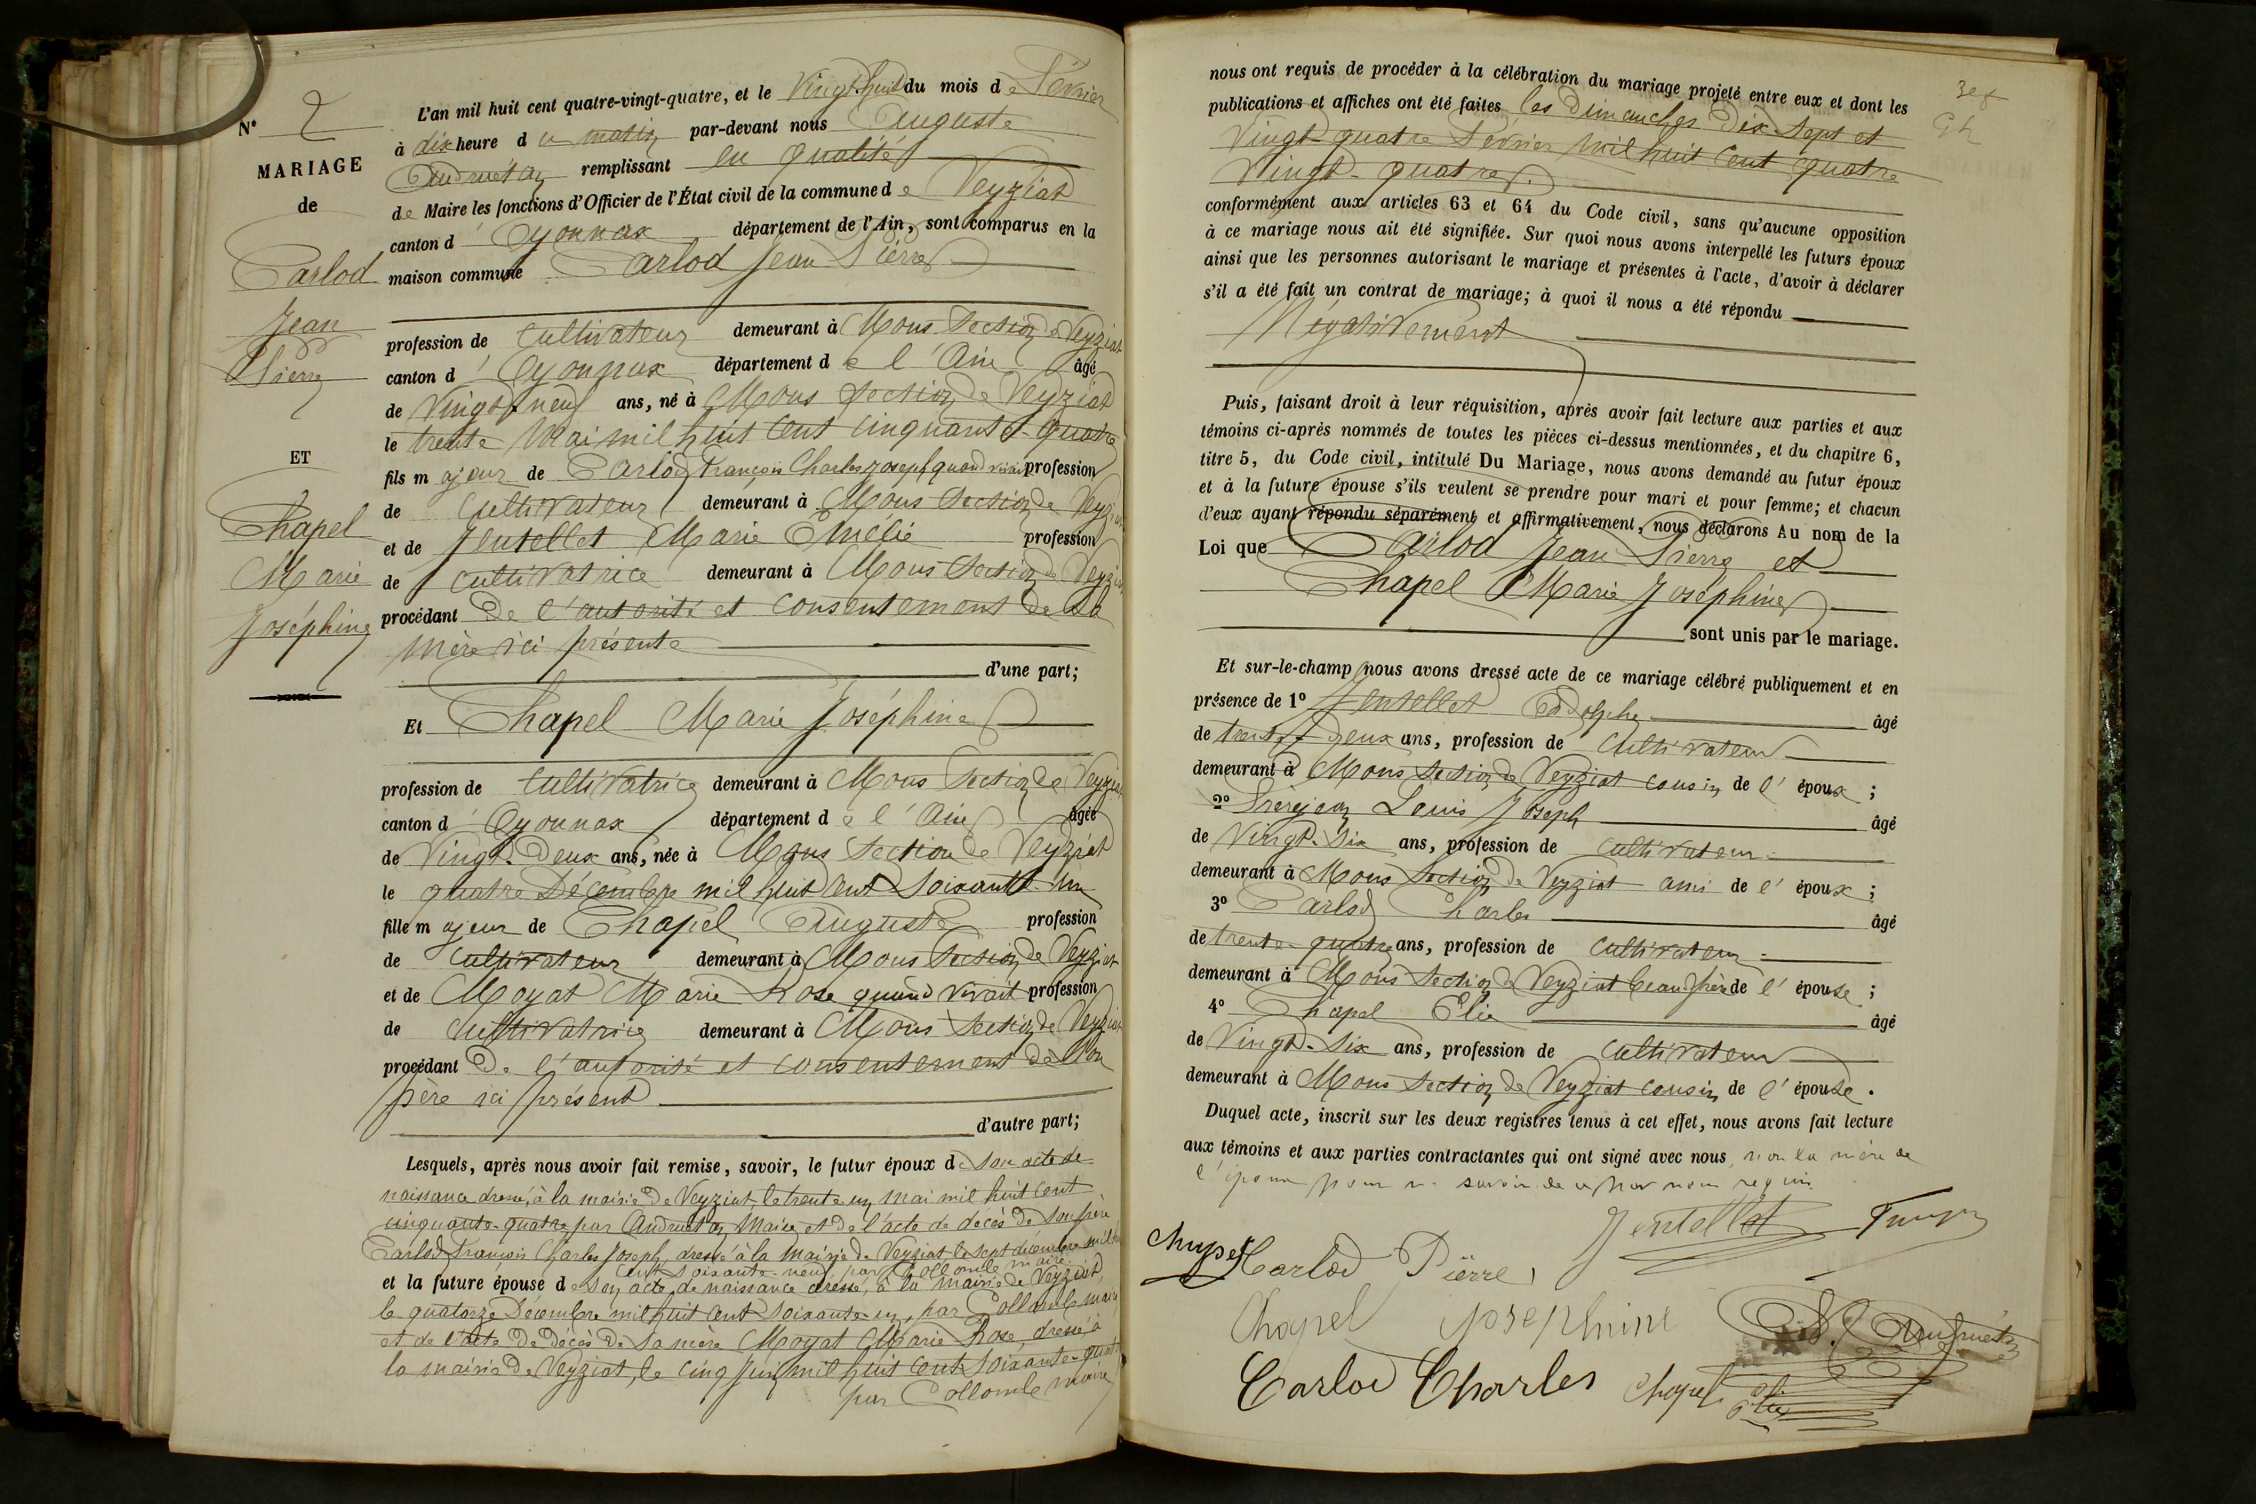 N° 2
MARIAGE
de
Carlod
Jean
Pierre
ET
Chapel
Marie
Joséphine
L'an mil huit cent quatre-vingt-quatre, et le Vingt-huit du mois de Février
à dix heure du matin par-devant nous Auguste
Andruétan remplissant en qualité
de Maire les fonctions d'Officier de l'État civil de la commune de Veyziat
canton d'Oyonnax département de l'Ain, sont comparus en la
maison commune Carlod Jean Pierre
profession de Cultivateur demeurant à Mons Section de Veyziat
canton d'Oyonnax département de l'Ain âgé
de Vingt neuf ans, né à Mons Section de Veyziat
le trente Mai mil huit cent cinquante-quatre
fils majeur de Carlod François Charles Joseph quand vivait profession
de Cultivateur demeurant à Mons Section de Veyziat
et de Jentellet Marie Amélie profession
de Cultivatrice demeurant à Mons Section de Veyziat
procédant De l'autorité et consentement de sa
mère ici présente
d'une part;
Et Chapel Marie Joséphine
profession de Cultivatrice demeurant à Mons Section de Veyziat
canton d'Oyonnax département de l'Ain âgée
de Vingt-Deux ans, née à Mons Section de Veyziat
le quatre Décembre mil huit cent soixante-un
fille majeur de Chapel Auguste profession
de Cultivateur demeurant à Mons Section de Veyziat
et de Moyat Marie Rose quand vivait profession
de Cultivatrice demeurant à Mons Section de Veyziat
procédant De l'autorité et consentement de son
père ici présent
d'autre part;
Lesquels, après nous avoir fait remise, savoir, le futur époux de son acte de
naissance dressé, à la mairie de Veyziat, le trente un mai mil huit cent
cinquante-quatre par Andruétan Maire, et de l'acte de décès de son père
Carlod François Charles Joseph, dressé à la mairie de Veyziat le sept décembre mil huit
cent soixante-neuf par Collombe maire
et la future épouse de son acte de naissance dressé, à la mairie de Veyziat,
le quatorze Décembre mil huit cent soixante un, par Collombe maire
et de l'acte de décès de sa mère Moyat Marie Rose, dressé à
la mairie de Veyziat, le cinq Juin mil huit cent soixante-quatre
par Collombe maire
nous ont requis de procéder à la célébration du mariage projeté entre eux et dont les
publications et affiches ont été faites les Dimanches Dix-Sept et
Vingt-quatre Février mil huit cent quatre
Vingt-quatre.
conformément aux articles 63 et 64 du Code civil, sans qu'aucune opposition
à ce mariage nous ait été signifiée. Sur quoi nous avons interpellé les futurs époux
ainsi que les personnes autorisant le mariage et présentes à l'acte, d'avoir à déclarer
s'il a été fait un contrat de mariage; à quoi il nous a été répondu
Négativement
Puis, faisant droit à leur réquisition, après avoir fait lecture aux parties et aux
témoins ci-après nommés de toutes les pièces ci-dessus mentionnées, et du chapitre 6,
titre 5, du Code civil, intitulé Du Mariage, nous avons demandé au futur époux
et à la future épouse s'ils veulent se prendre pour mari et pour femme; et chacun
d'eux ayant répondu séparément et affirmativement, nous déclarons Au nom de la
Loi que Carlod Jean Pierre et
Chapel Marie Joséphine
sont unis par le mariage.
Et sur-le-champ nous avons dressé acte de ce mariage célébré publiquement et en
présence de 1° Jentellet Adolphe âgé
de trente Deux ans, profession de Cultivateur
demeurant à Mons Section de Veyziat cousin de l'époux;
2° Frèrejean Louis Joseph âgé
de Vingt-Six ans, profession de Cultivateur
demeurant à Mons Section de Veyziat ami de l'époux;
3° Carlod Charles âgé
de trente-quatre ans, profession de Cultivateur
demeurant à Mons Section de Veyziat beau-frère de l'épouse;
4° Chapel Elie âgé
de Vingt-Six ans, profession de Cultivateur
demeurant à Mons Section de Veyziat cousin de l'épouse.
Duquel acte, inscrit sur les deux registres tenus à cet effet, nous avons fait lecture
aux témoins et aux parties contractantes qui ont signé avec nous, non la mère de
l'époux pour ne savoir de ce par nous requis
Jentellet
Chapel Carlod Pierre
Chapel Josephine
A. Andruétan
Carlod Charles Chapel Elie